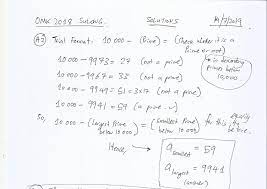 OMK 2018 SULONG. SOLUTIONS
A2 Trial Format: 10 000 - (Prime) = (Check whether it is a Prime or not)
10 000 - 9973 = 27 (not a prime)
10 000 - 9967 = 33 (not a prime)
10 000 - 9949 = 51 = 3×17 (not a prime)
10 000 - 9941 = 59 (a prime ✓)
* in descending primes below 10,000
So, 10 000 - (Largest Prime below 10 000) = (smallest Prime below 10 000) for this
Hence,
a smallest = 59
a largest = 9941
(answer)